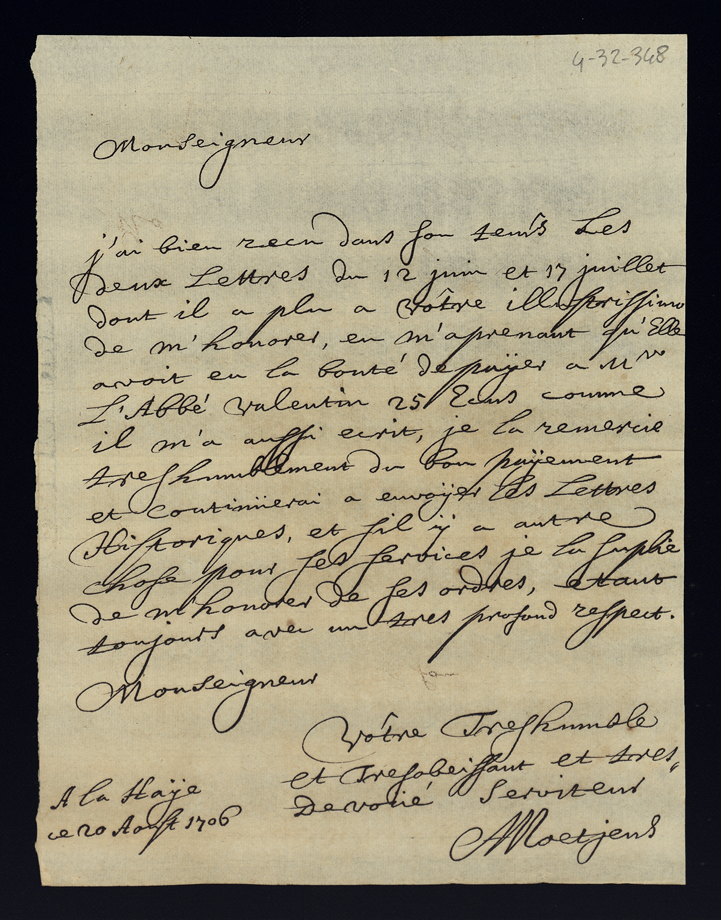 4-32-348
Monseigneur
j'ai bien recu dans son tems Les
deux Lettres du 12 juin et 17 juillet
dont il a plu a vôtre illustrissime
de m'honorer, en m'aprenant qu'Elle
avoit eu la bonté de payer a Mr
L'Abbé Valentin 25 Ecus comme
il m'a aussi ecrit, je la remercie
treshumblement du bon payement
et continüerai a envoyer les Lettres
Historiques, et s'il y a autre
chose pour ses services je la suplie
de m'honorer de ses ordres, etant
toujours avec un tres profond respect.
Monseigneur
Vôtre Treshumble
et Tresobeissant et tres,
Devoüé Serviteur
A Moetjens
A la Haÿe
ce 20 Aoust 1706